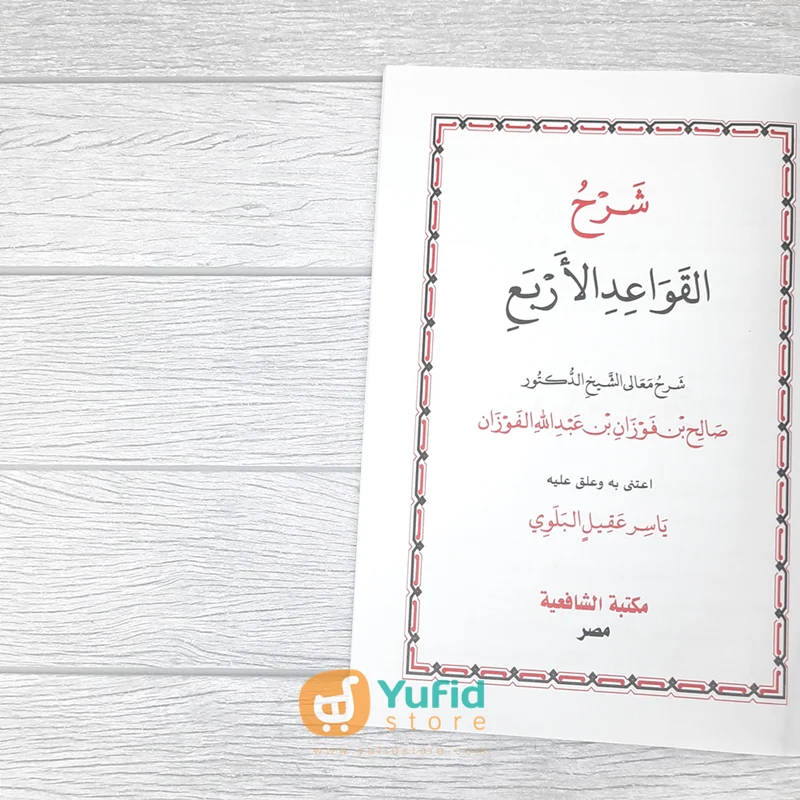 شَرْحُ
القَوَاعِدِ الأَرْبَعِ
شَرحُ مَعَالى الشَّيخِ الدُّكتُور
صَالِح بْن فَوْزَانِ بْن عَبْدِ اللهِ الفَوْزَان
اعتنى به وعلق عليه
يَاسِر عَقِيلٍ البَلَوِي
مكتبة الشافعية
مصر
Yufid
store
www.yufidstore.com